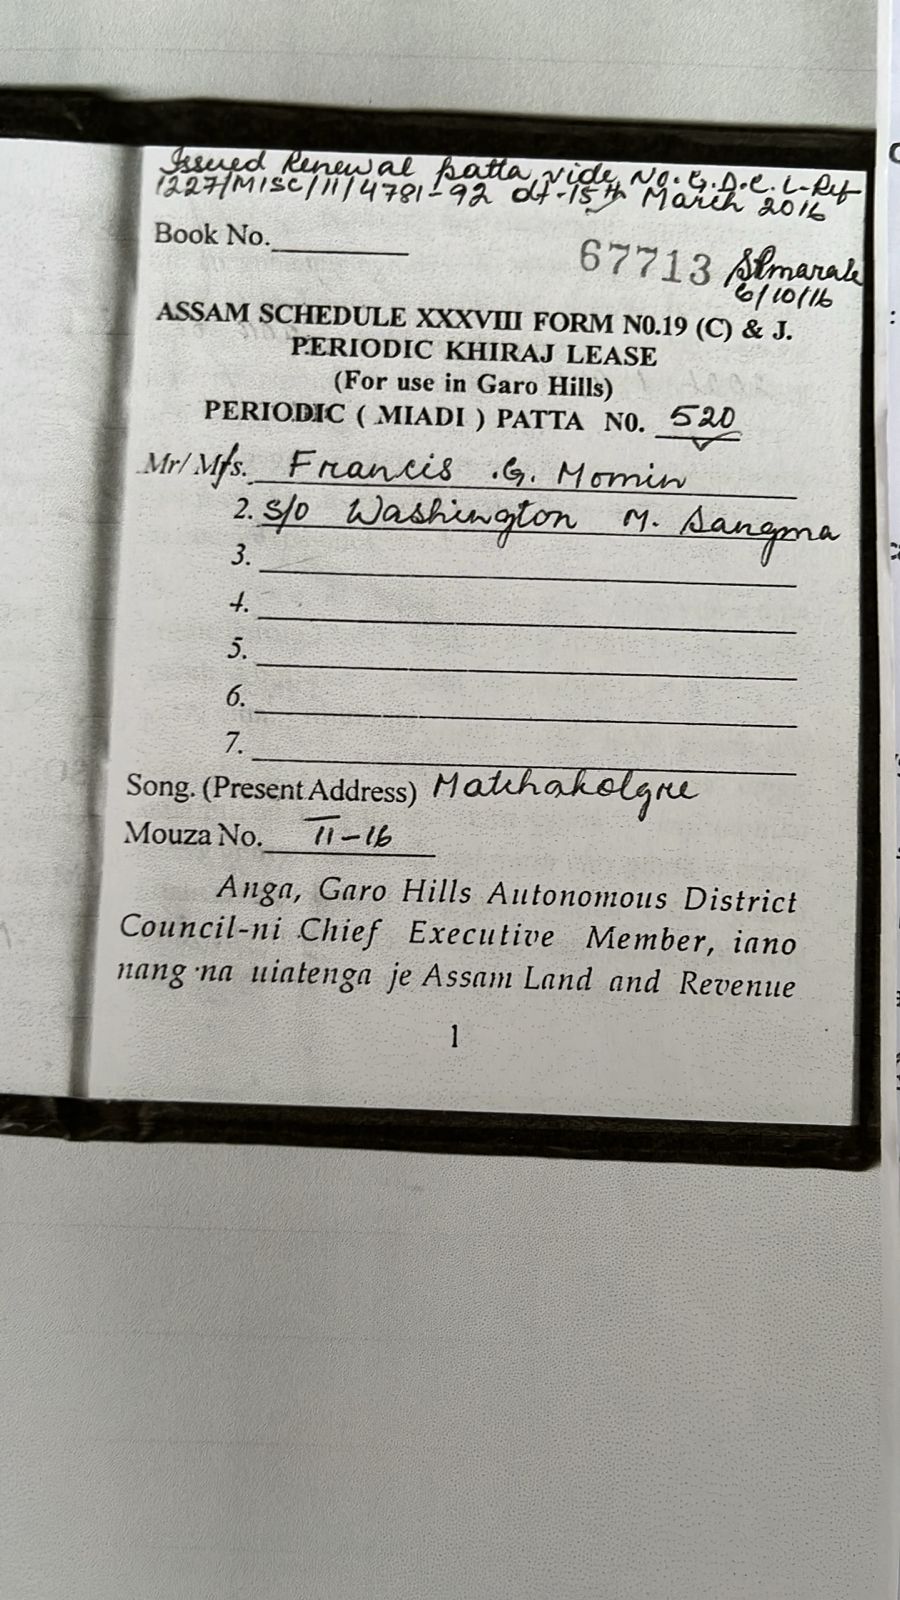 Issued Renewal patta vide No. G.D.C. L-Ref
1227/MISC/11/4781-92 dt-15th March 2016
Book No.
67713
6/10/16
ASSAM SCHEDULE XXXVIII FORM N0.19 (C) & J.
PERIODIC KHIRAJ LEASE
(For use in Garo Hills)
PERIODIC ( MIADI ) PATTA N0. 520
Mr/ Mrs. Francis .G. Momin
2. S/o Washington M. Sangma
3.
4.
5.
6.
7.
Song. (Present Address) Matchakolgre
Mouza No. II-16
Anga, Garo Hills Autonomous District
Council-ni Chief Executive Member, iano
nang·na uiatenga je Assam Land and Revenue
1